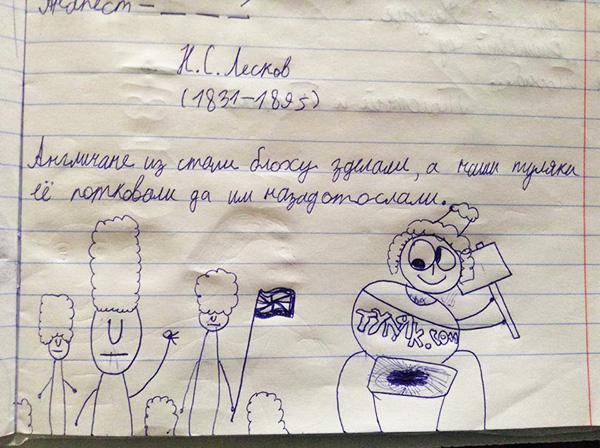 Анапест – _ _ _ _ ´
Н. С. Лесков
(1831–1895)
Англичане из стали блоху зделали, а наши туляки
её потковали да им назадотослали.
ТУЛЯК.com